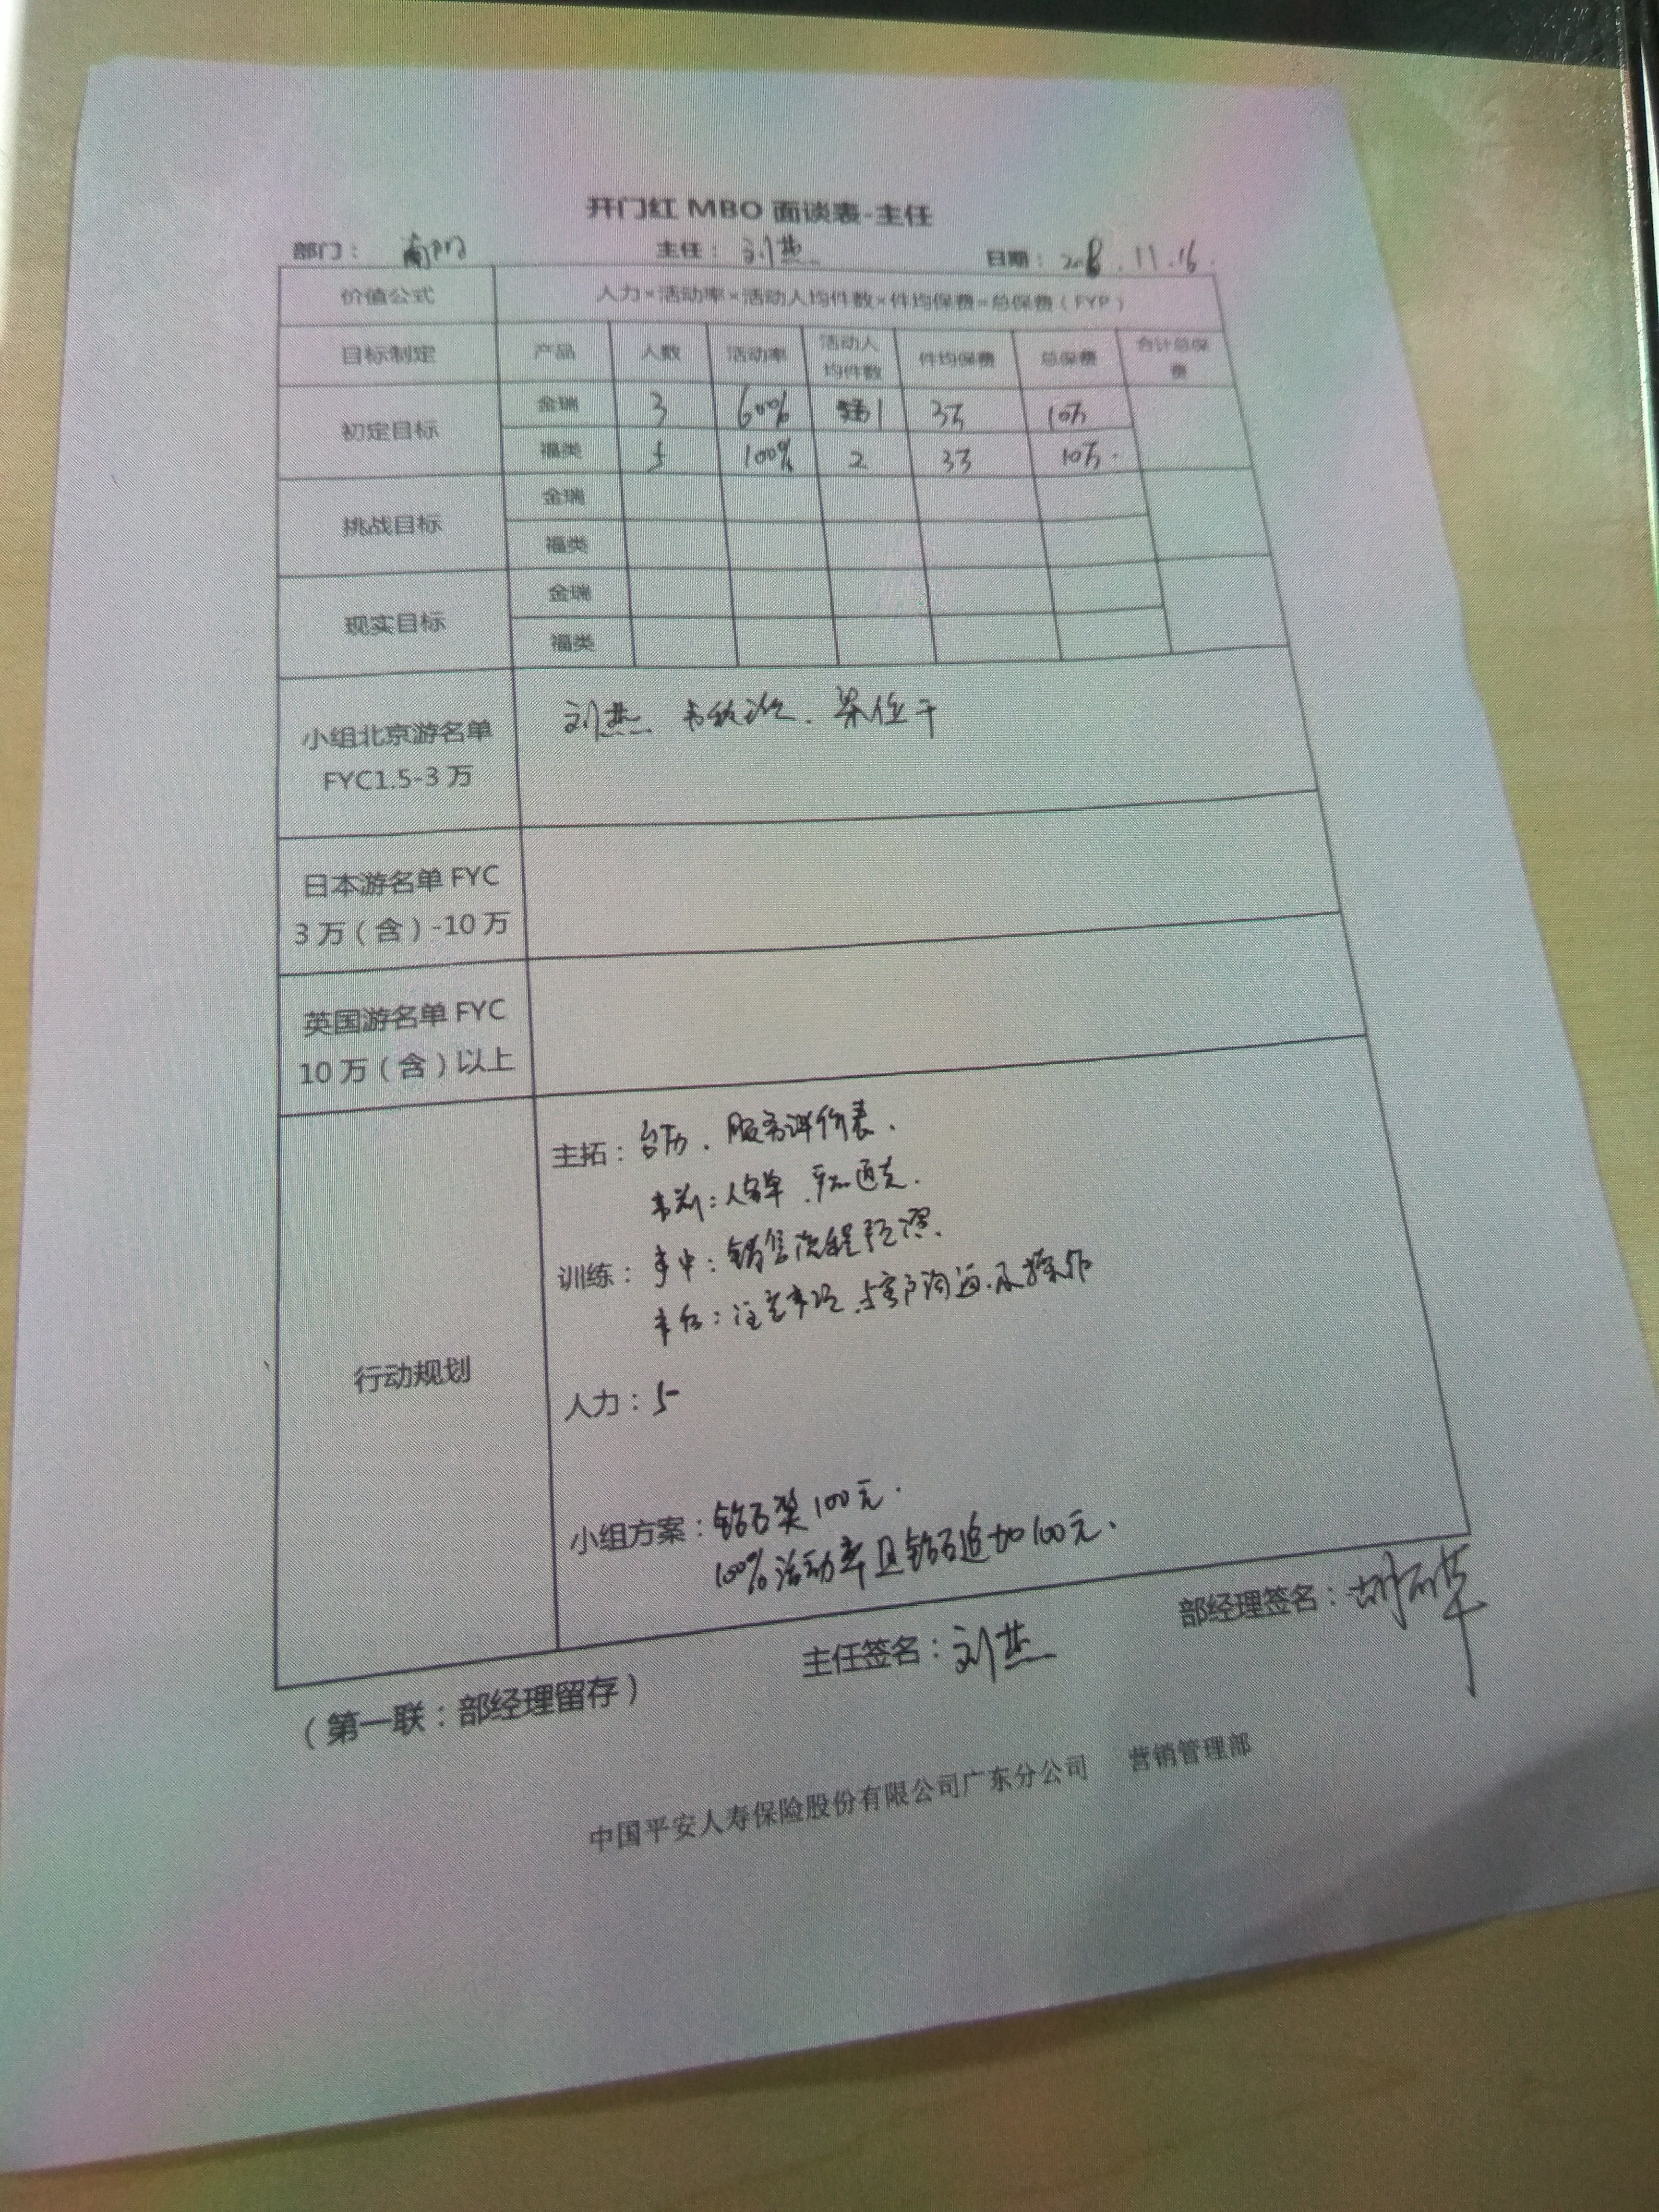 开门红 MBO 面谈表-主任
部门： 主任：刘燕 日期：2018.11.16.
价值公式 人力×活动率×活动人均件数×件均保费=总保费（FYP）
目标制定 产品 人数 活动率 活动人均件数 件均保费 总保费 合计总保费
初定目标 金瑞 3 60% 1 3万 10万
福类 5 100% 2 3万 10万.
挑战目标 金瑞
福类
现实目标 金瑞
福类
小组北京游名单 刘燕
FYC1.5-3 万
日本游名单 FYC
3 万（含）-10 万
英国游名单 FYC
10 万（含）以上
行动规划
主拓：台历、服务评价表.
事前：人名单、产品通关.
训练：事中：销售流程
事后：注意事项、与客户沟通、
人力：5
小组方案：钻石奖100元.
100%活动率且钻石追加100元.
主任签名：刘燕 部经理签名：
（第一联：部经理留存）
中国平安人寿保险股份有限公司广东分公司 营销管理部